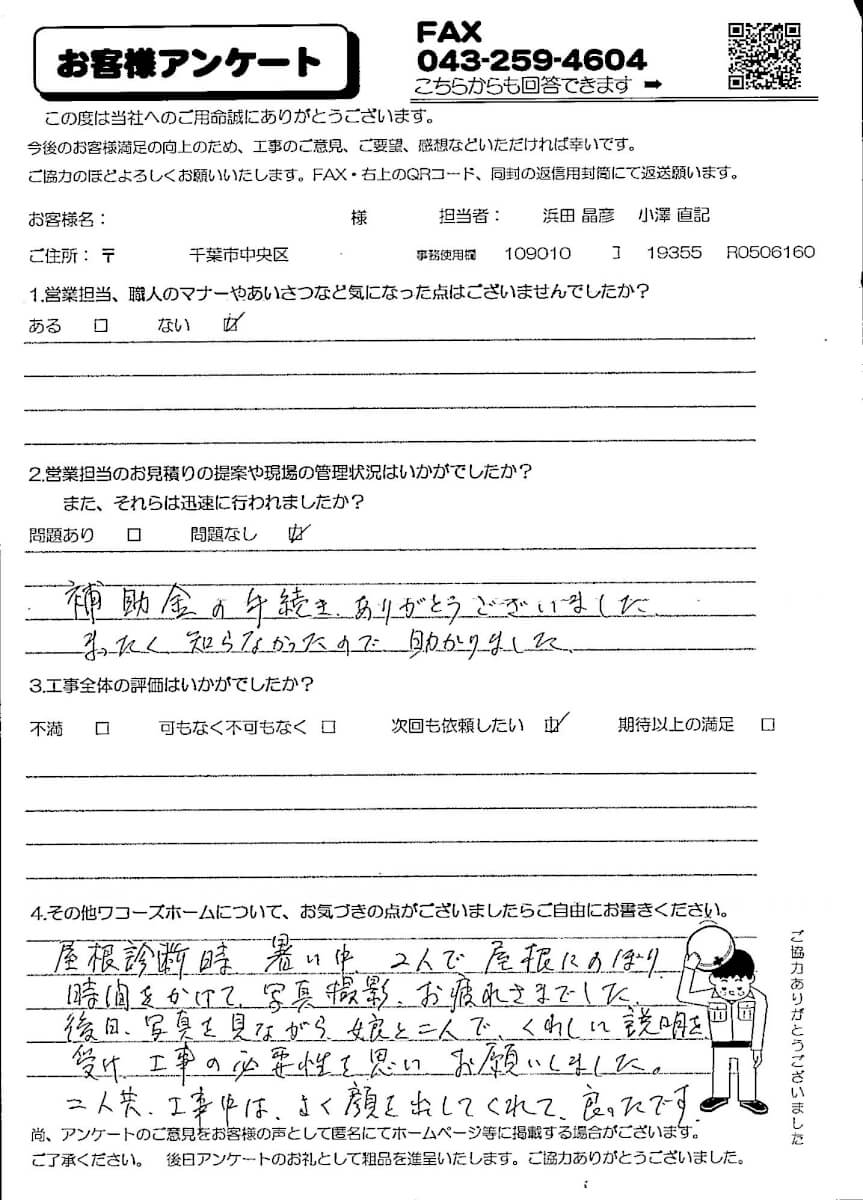 お客様アンケート
FAX
043-259-4604
こちらからも回答できます ➡
この度は当社へのご用命誠にありがとうございます。
今後のお客様満足の向上のため、工事のご意見、ご要望、感想などいただければ幸いです。
ご協力のほどよろしくお願いいたします。FAX・右上のQRコード、同封の返信用封筒にて返送願います。
お客様名： 様 担当者： 浜田 晶彦 小澤 直記
ご住所：〒 千葉市中央区 事務使用欄 109010 ｺ 19355 R0506160
1.営業担当、職人のマナーやあいさつなど気になった点はございませんでしたか？
ある □ ない ☑
2.営業担当のお見積りの提案や現場の管理状況はいかがでしたか？
また、それらは迅速に行われましたか？
問題あり □ 問題なし ☑
補助金の手続き、ありがとうございました
まったく知らなかったので助かりました
3.工事全体の評価はいかがでしたか？
不満 □ 可もなく不可もなく □ 次回も依頼したい ☑ 期待以上の満足 □
4.その他ワコーズホームについて、お気づきの点がございましたらご自由にお書きください。
屋根診断時 暑い中、2人で屋根にのぼり
時間をかけて、写真撮影、お疲れさまでした、
後日、写真を見ながら、娘と二人で、くわしい説明を
受け、工事の必要性を思い、お願いしました。
二人共、工事中は、よく顔を出してくれて、良ったです
尚、アンケートのご意見をお客様の声として匿名にてホームページ等に掲載する場合がございます。
ご了承ください。 後日アンケートのお礼として粗品を進呈いたします。ご協力ありがとうございました。
ご協力ありがとうございました